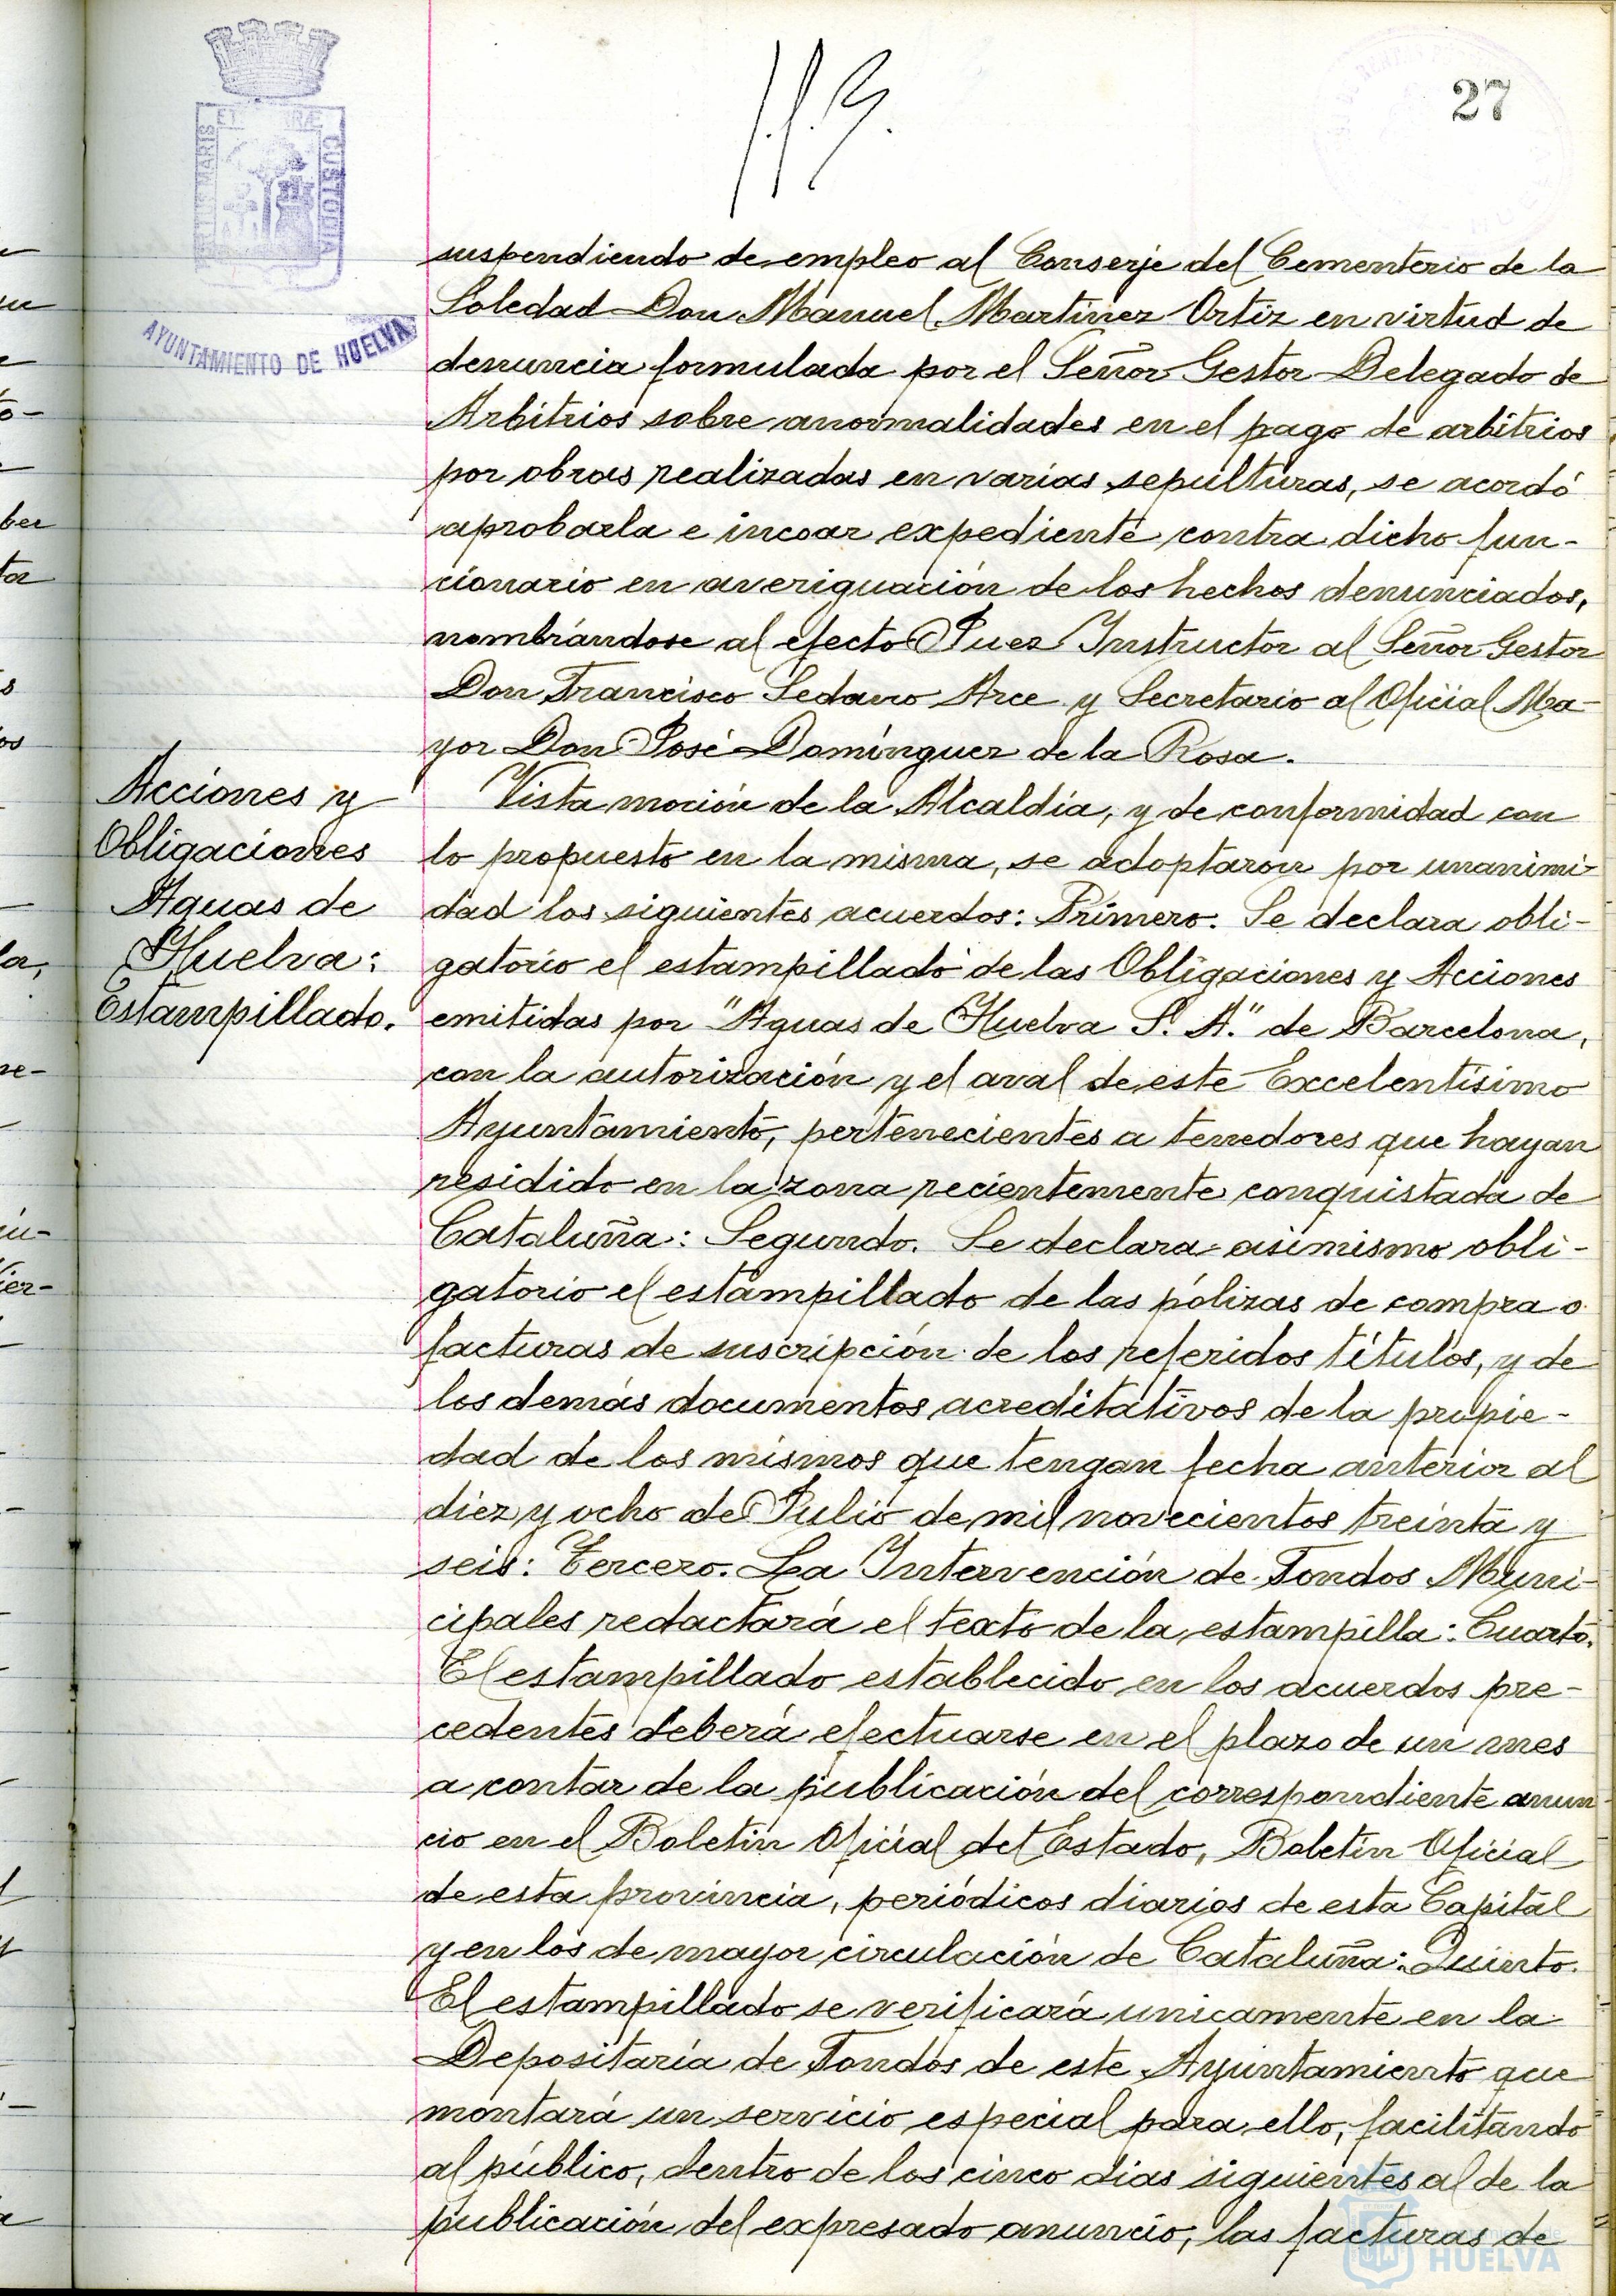 27
PORTUS MARIS ET TERRÆ CUSTODIA
AYUNTAMIENTO DE HUELVA
suspendiendo de empleo al Conserje del Cementerio de la
Soledad Don Manuel Martinez Ortiz en virtud de
denuncia formulada por el Señor Gestor Delegado de
Arbitrios sobre anormalidades en el pago de arbitrios
por obras realizadas en varias sepulturas, se acordó
aprobarla e incoar expediente contra dicho fun-
cionario en averiguación de los hechos denunciados,
nombrándose al efecto Juez Instructor al Señor Gestor
Don Francisco Sedano Arce y Secretario al Oficial Ma-
yor Don José Domínguez de la Rosa.
Acciones y
Obligaciones
Aguas de
Huelva:
Estampillado.
Vista moción de la Alcaldía, y de conformidad con
lo propuesto en la misma, se adoptaron por unanimi-
dad los siguientes acuerdos: Primero. Se declara obli-
gatorio el estampillado de las Obligaciones y Acciones
emitidas por "Aguas de Huelva S. A." de Barcelona,
con la autorización y el aval de este Excelentísimo
Ayuntamiento, pertenecientes a tenedores que hayan
residido en la zona recientemente conquistada de
Cataluña: Segundo. Se declara asimismo obli-
gatorio el estampillado de las pólizas de compra o
facturas de suscripción de los referidos títulos, y de
los demás documentos acreditativos de la propie-
dad de los mismos que tengan fecha anterior al
diez y ocho de Julio de mil novecientos treinta y
seis: Tercero. La Intervención de Fondos Muni-
cipales redactará el texto de la estampilla: Cuarto.
El estampillado establecido en los acuerdos pre-
cedentes deberá efectuarse en el plazo de un mes
a contar de la publicación del correspondiente anun
cio en el Boletín Oficial del Estado, Boletín Oficial
de esta provincia, periódicos diarios de esta Capital
y en los de mayor circulación de Cataluña: Quinto.
El estampillado se verificará unicamente en la
Depositaría de Fondos de este Ayuntamiento que
montará un servicio especial para ello, facilitando
al público, dentro de los cinco dias siguientes al de la
publicación del expresado anuncio, las facturas de
HUELVA